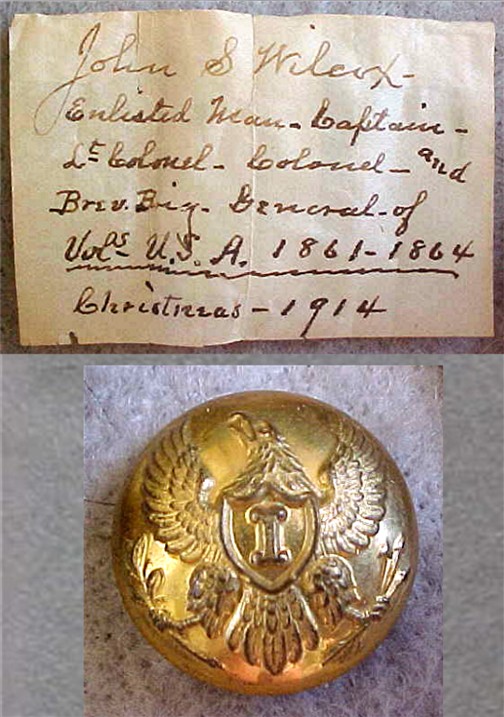 John S Wilcox -
Enlisted Man - Captain -
Lt Colonel - Colonel - and
Brev. Brig. General - of
Vols U.S.A. 1861-1864
Christmas - 1914
I